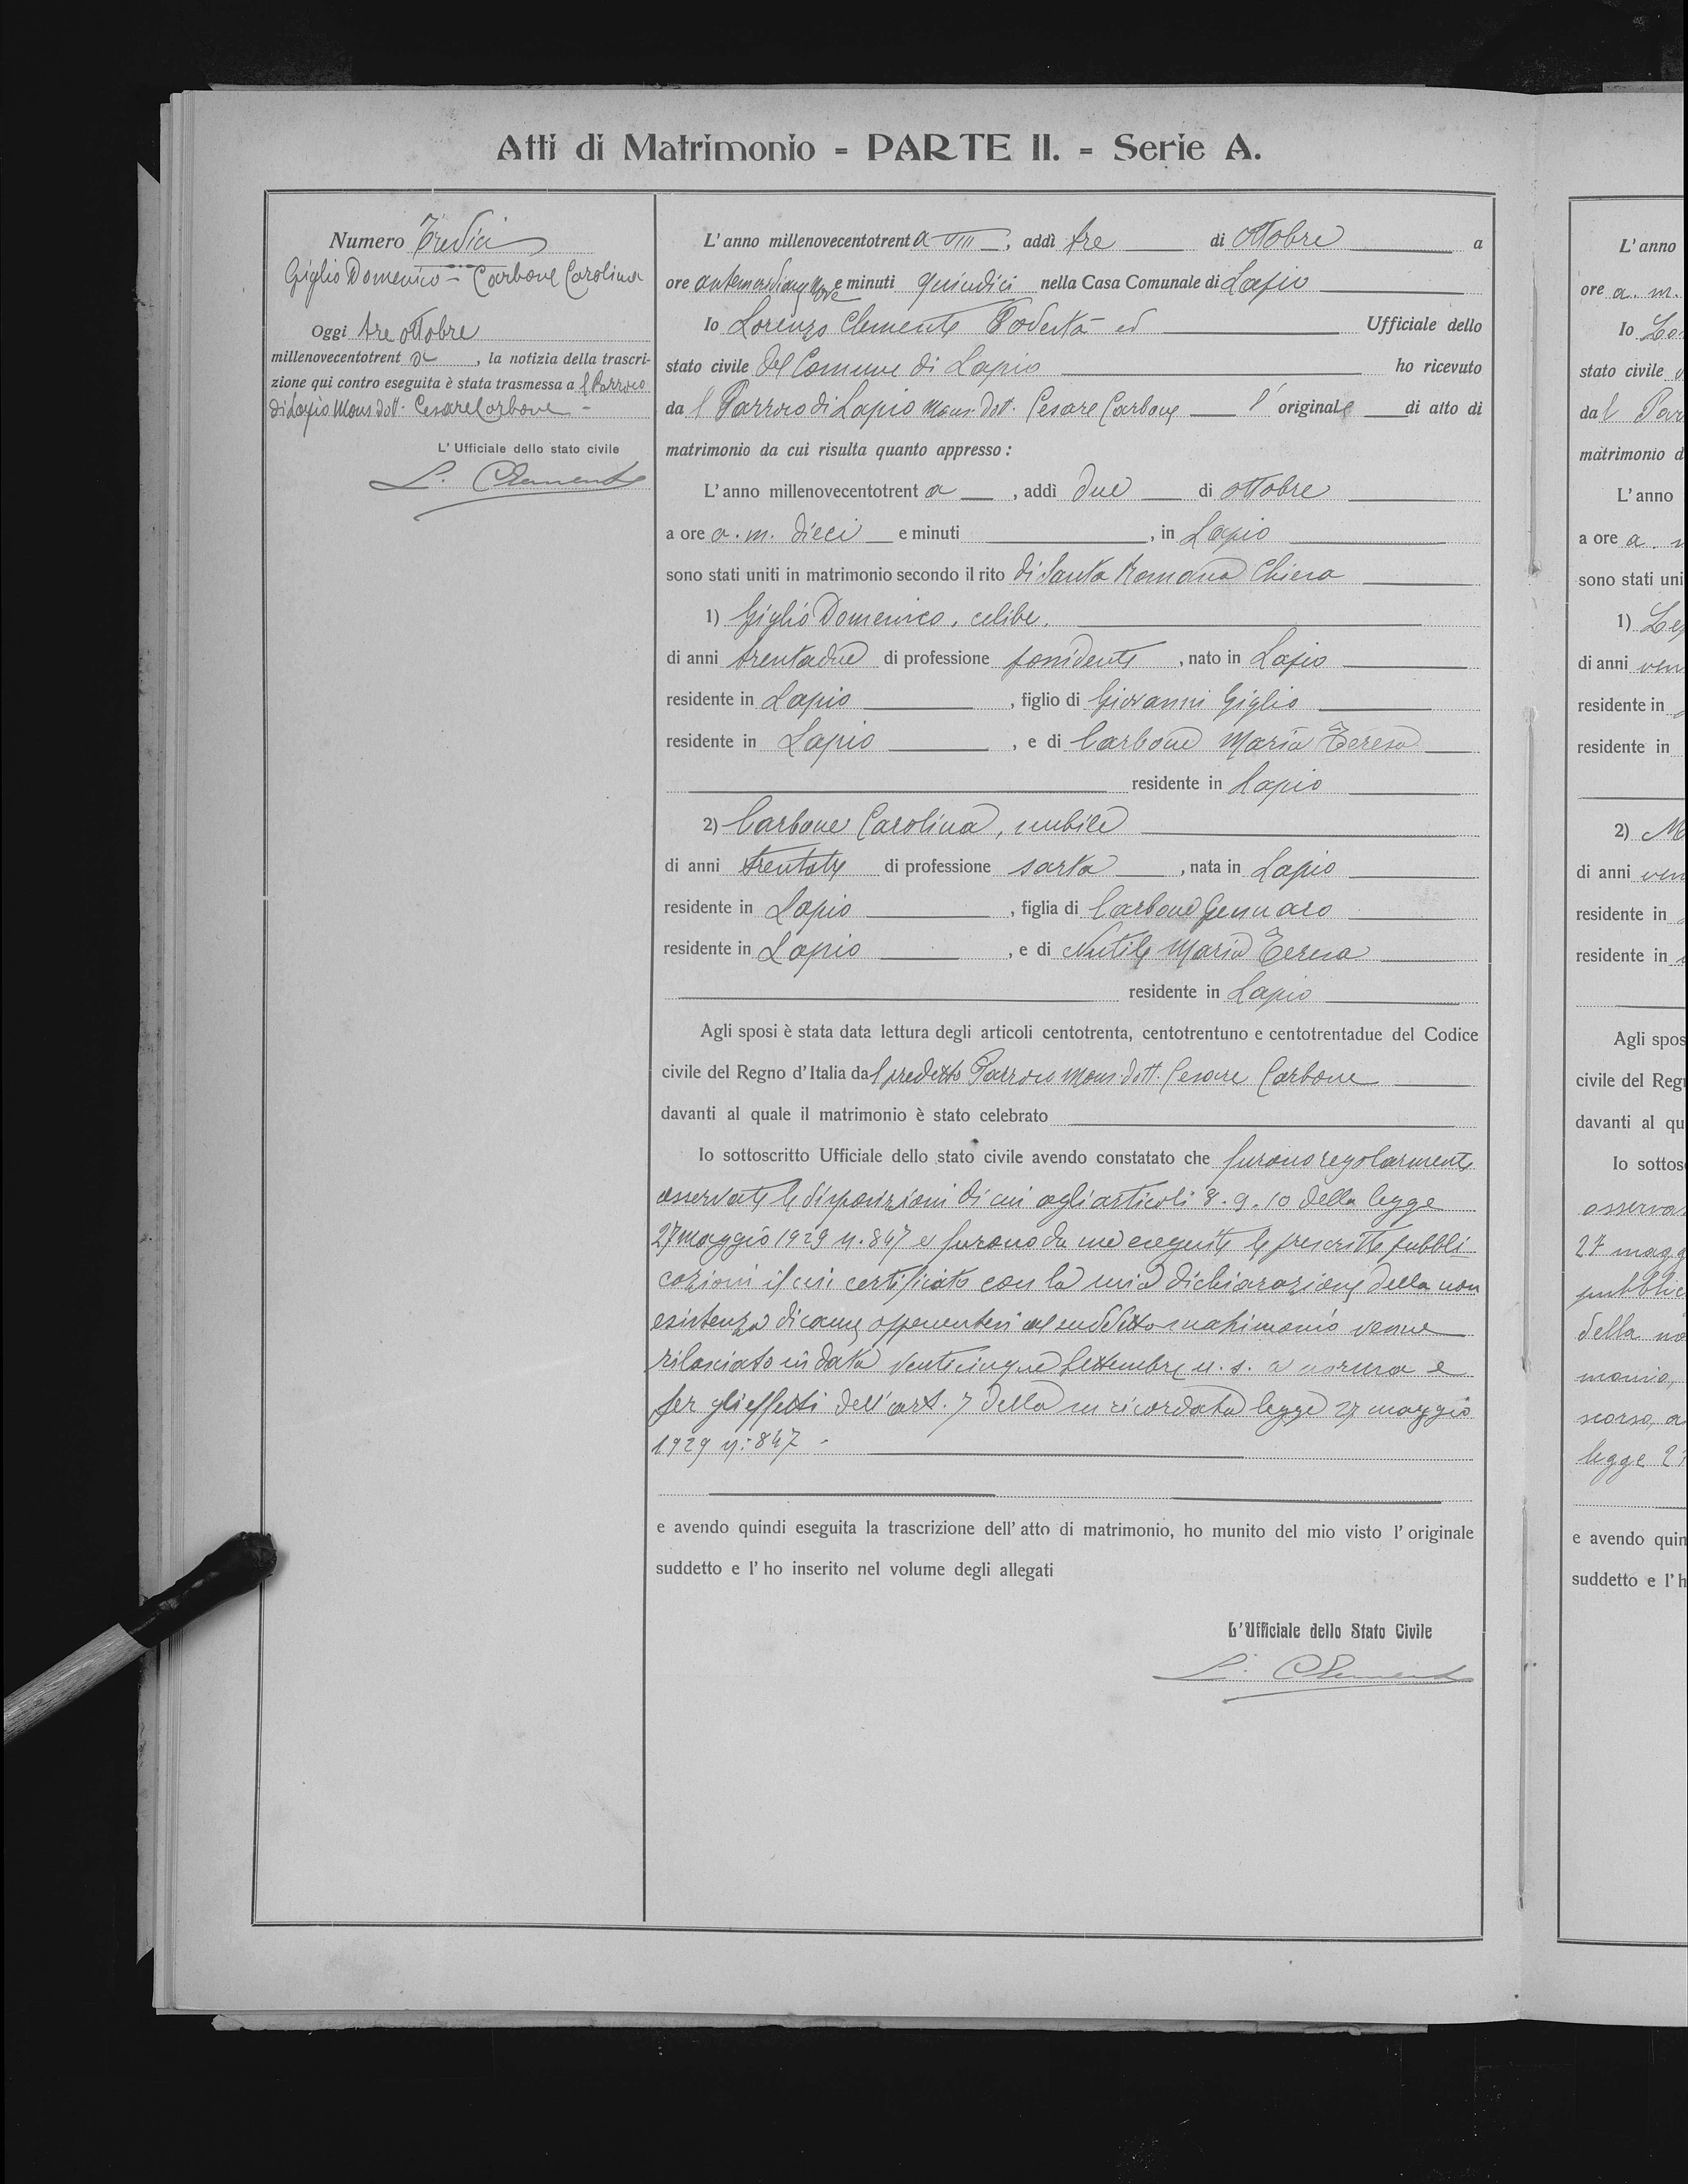 Atti di Matrimonio - PARTE II. - Serie A.
Numero Tredici
Giglio Domenico - Carbone Carolina
Oggi tre ottobre
millenovecentotrent a, la notizia della trascri-
zione qui contro eseguita è stata trasmessa a l Parroco
di Lapio Mons. Dott. Cesare Carbone -
L'Ufficiale dello stato civile
L. Clemente
L'anno millenovecentotrent a VIII, addì tre di ottobre a
ore antemeridiane nove e minuti quindici nella Casa Comunale di Lapio
Io Lorenzo Clemente Podestà ed Ufficiale dello
stato civile del Comune di Lapio ho ricevuto
da l Parroco di Lapio Mons. Dott. Cesare Carbone l' originale di atto di
matrimonio da cui risulta quanto appresso:
L'anno millenovecentotrent a, addì due di ottobre
a ore a. m. dieci e minuti , in Lapio
sono stati uniti in matrimonio secondo il rito di Santa Romana Chiesa
1) Giglio Domenico, celibe.
di anni trentadue di professione possidente, nato in Lapio
residente in Lapio, figlio di Giovanni Giglio
residente in Lapio, e di Carbone Maria Teresa
residente in Lapio
2) Carbone Carolina, nubile
di anni trentatre di professione sarta, nata in Lapio
residente in Lapio, figlia di Carbone Gennaro
residente in Lapio, e di Nutile Maria Teresa
residente in Lapio
Agli sposi è stata data lettura degli articoli centotrenta, centotrentuno e centotrentadue del Codice
civile del Regno d'Italia da l predetto Parroco Mons. Dott. Cesare Carbone
davanti al quale il matrimonio è stato celebrato
Io sottoscritto Ufficiale dello stato civile avendo constatato che furono regolarmente
osservate le disposizioni di cui agli articoli 8. 9. 10 della legge
27 maggio 1929 n. 847 e furono da me eseguite le prescritte pubbli-
cazioni il cui certificato con la mia dichiarazione della non
esistenza di cause opponentesi al suddetto matrimonio venne
rilasciato in data venticinque settembre u. s. a norma e
per gli effetti dell'art. 7 della su ricordata legge 27 maggio
1929 n: 847 -
e avendo quindi eseguita la trascrizione dell'atto di matrimonio, ho munito del mio visto l'originale
suddetto e l'ho inserito nel volume degli allegati
L'Ufficiale dello Stato Civile
L. Clemente
L'anno
ore a. m.
Io
stato civile
da l
matrimonio d
L'anno
a ore a.
sono stati uni
1)
di anni
residente in
residente in
2)
di anni
residente in
residente in
Agli spos
civile del Reg
davanti al qu
Io sottos
27 magg
della
legge
e avendo quin
suddetto e l'h